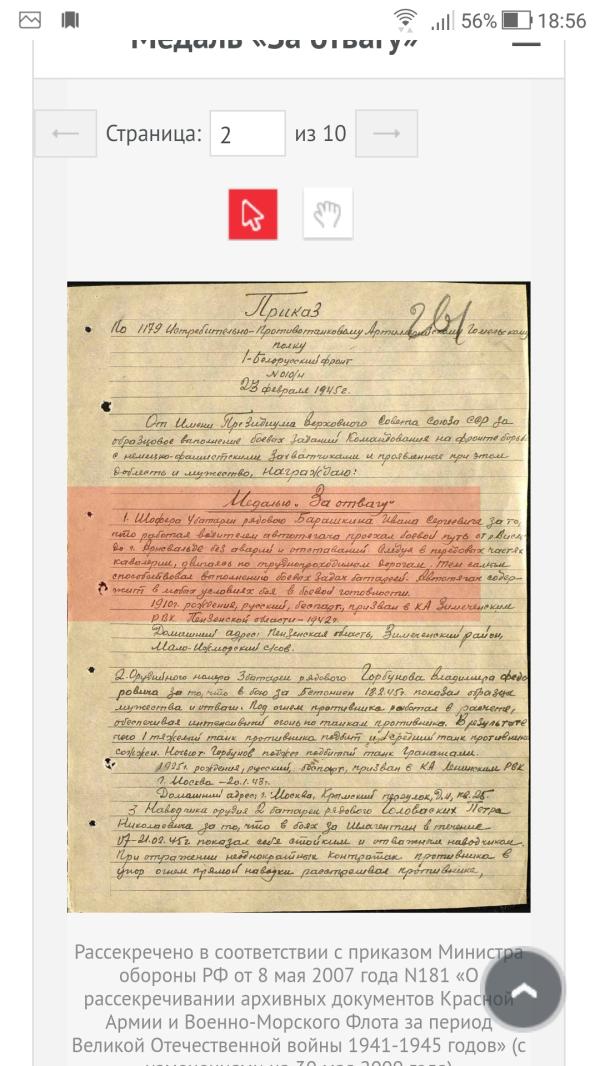 56% 18:56
Медаль «За отвагу»
Страница: 2 из 10
Приказ
По 1179 Истребительно-Противотанковому Артиллерийскому Гомельскому
полку
1-Белорусский фронт
N 010/н
23 февраля 1945г.
От Имени Президиума Верховного Совета Союза ССР за
образцовое выполнение боевых заданий Командования на фронте борьбы
с немецко-фашистскими захватчиками и проявленные при этом
доблесть и мужество, Награждаю:
Медалью „За отвагу"
1. Шофера батареи рядового Барашкина Ивана Сергеевича за то,
что работая водителем автотягача проехал боевой путь от
до г. Арнсвальде без аварий и отставаний. Следуя в передовых частях
кавалерии, двигаясь по труднопроходимым дорогам, тем самым
способствовал выполнению боевых задач батареей. Автотягач содер-
жит в любых условиях боя в боевой готовности.
1910г. рождения, русский, беспарт, призван в КА Земетченским
РВК Пензенской области - 1942г.
Домашний адрес: Пензенская область, Земетченский район,
Мало-Ижморский с/сов.
2. Орудийного номера 3 батареи рядового Горбунова Владимира Федо
ровича за то, что в бою за 18.2.45г. показал образцы
мужества и отваги. Под огнем противника работал в расчете,
обеспечивая интенсивный огонь по танкам противника. В результате
чего 1 тяжелый танк противника подбит и 1 средний танк противника
сожжен. Горбунов подбитый танк гранатами.
1925г. рождения, русский, беспарт, призван в КА Ленинским РВК
г. Москва - 20.1.43г.
Домашний адрес: г. Москва, Крымский переулок, кв. 25
3. Наводчика орудия 2 батареи рядового Петра
Николаевича за то, что в боях за в течение
17-21.02.45г показал себя стойким и отважным наводчиком.
При отражении неоднократных контратак противника в
упор огнем прямой наводки расстреливал противника,
Рассекречено в соответствии с приказом Министра
обороны РФ от 8 мая 2007 года N181 «О
рассекречивании архивных документов Красной
Армии и Военно-Морского Флота за период
Великой Отечественной войны 1941-1945 годов» (с
изменениями на 30 мая 2009 года)